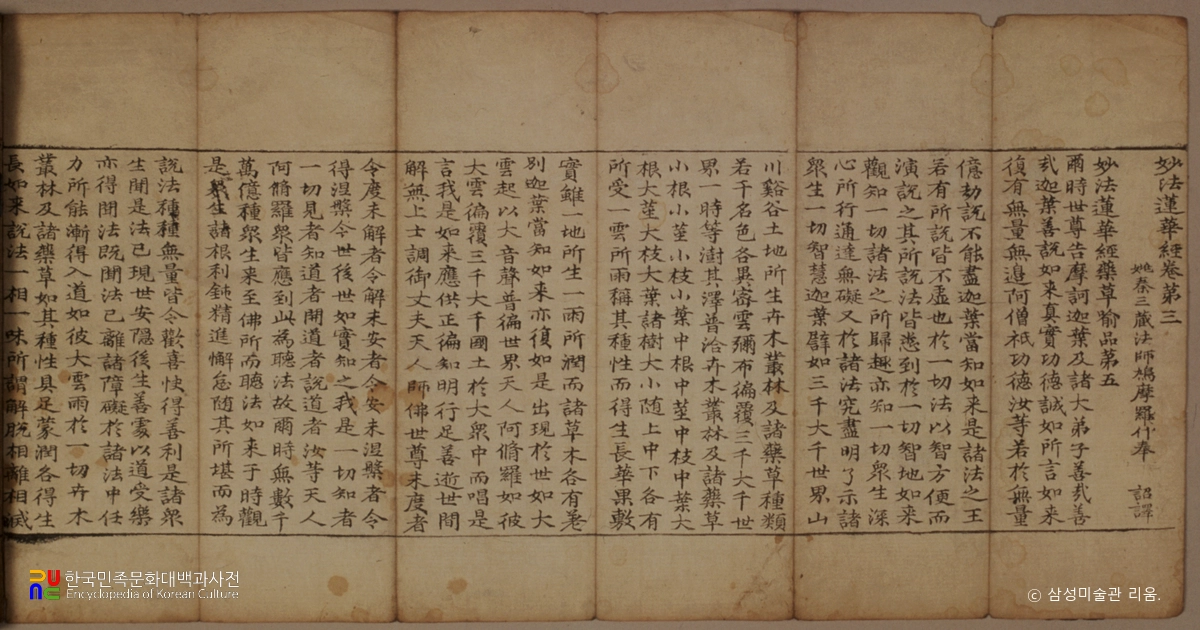 妙法蓮華經卷第三
姚秦三藏法師鳩摩羅什奉 詔譯
妙法蓮華經藥草喻品第五
爾時世尊告摩訶迦葉及諸大弟子善哉善
哉迦葉善說如來真實功德誠如所言如來
復有無量無邊阿僧祇功德汝等若於無量
億劫說不能盡迦葉當知如來是諸法之王
若有所說皆不虛也於一切法以智方便而
演說之其所說法皆悉到於一切智地如來
觀知一切諸法之所歸趣亦知一切衆生深
心所行通達無礙又於諸法究盡明了示諸
衆生一切智慧迦葉譬如三千大千世界山
川谿谷土地所生卉木叢林及諸藥草種類
若干名色各異密雲彌布徧覆三千大千世
界一時等澍其澤普洽卉木叢林及諸藥草
小根小莖小枝小葉中根中莖中枝中葉大
根大莖大枝大葉諸樹大小随上中下各有
所受一雲所雨稱其種性而得生長華果敷
實雖一地所生一雨所潤而諸草木各有差
別迦葉當知如來亦復如是出現於世如大
雲起以大音聲普徧世界天人阿脩羅如彼
大雲徧覆三千大千國土於大衆中而唱是
言我是如來應供正徧知明行足善逝世間
解無上士調御丈夫天人師佛世尊未度者
令度未解者令解未安者令安未涅槃者令
得涅槃今世後世如實知之我是一切知者
一切見者知道者開道者說道者汝等天人
阿脩羅衆皆應到此為聽法故爾時無數千
萬億種衆生來至佛所而聽法如來于時觀
是衆生諸根利鈍精進懈怠随其所堪而為
說法種種無量皆令歡喜快得善利是諸衆
生聞是法已現世安隱後生善處以道受樂
亦得聞法既聞法已離諸障礙於諸法中任
力所能漸得入道如彼大雲雨於一切卉木
叢林及諸藥草如其種性具足蒙潤各得生
長如來說法一相一味所謂解脫相離相滅
한국민족문화대백과사전
Encyclopedia of Korean Culture
© 삼성미술관 리움.